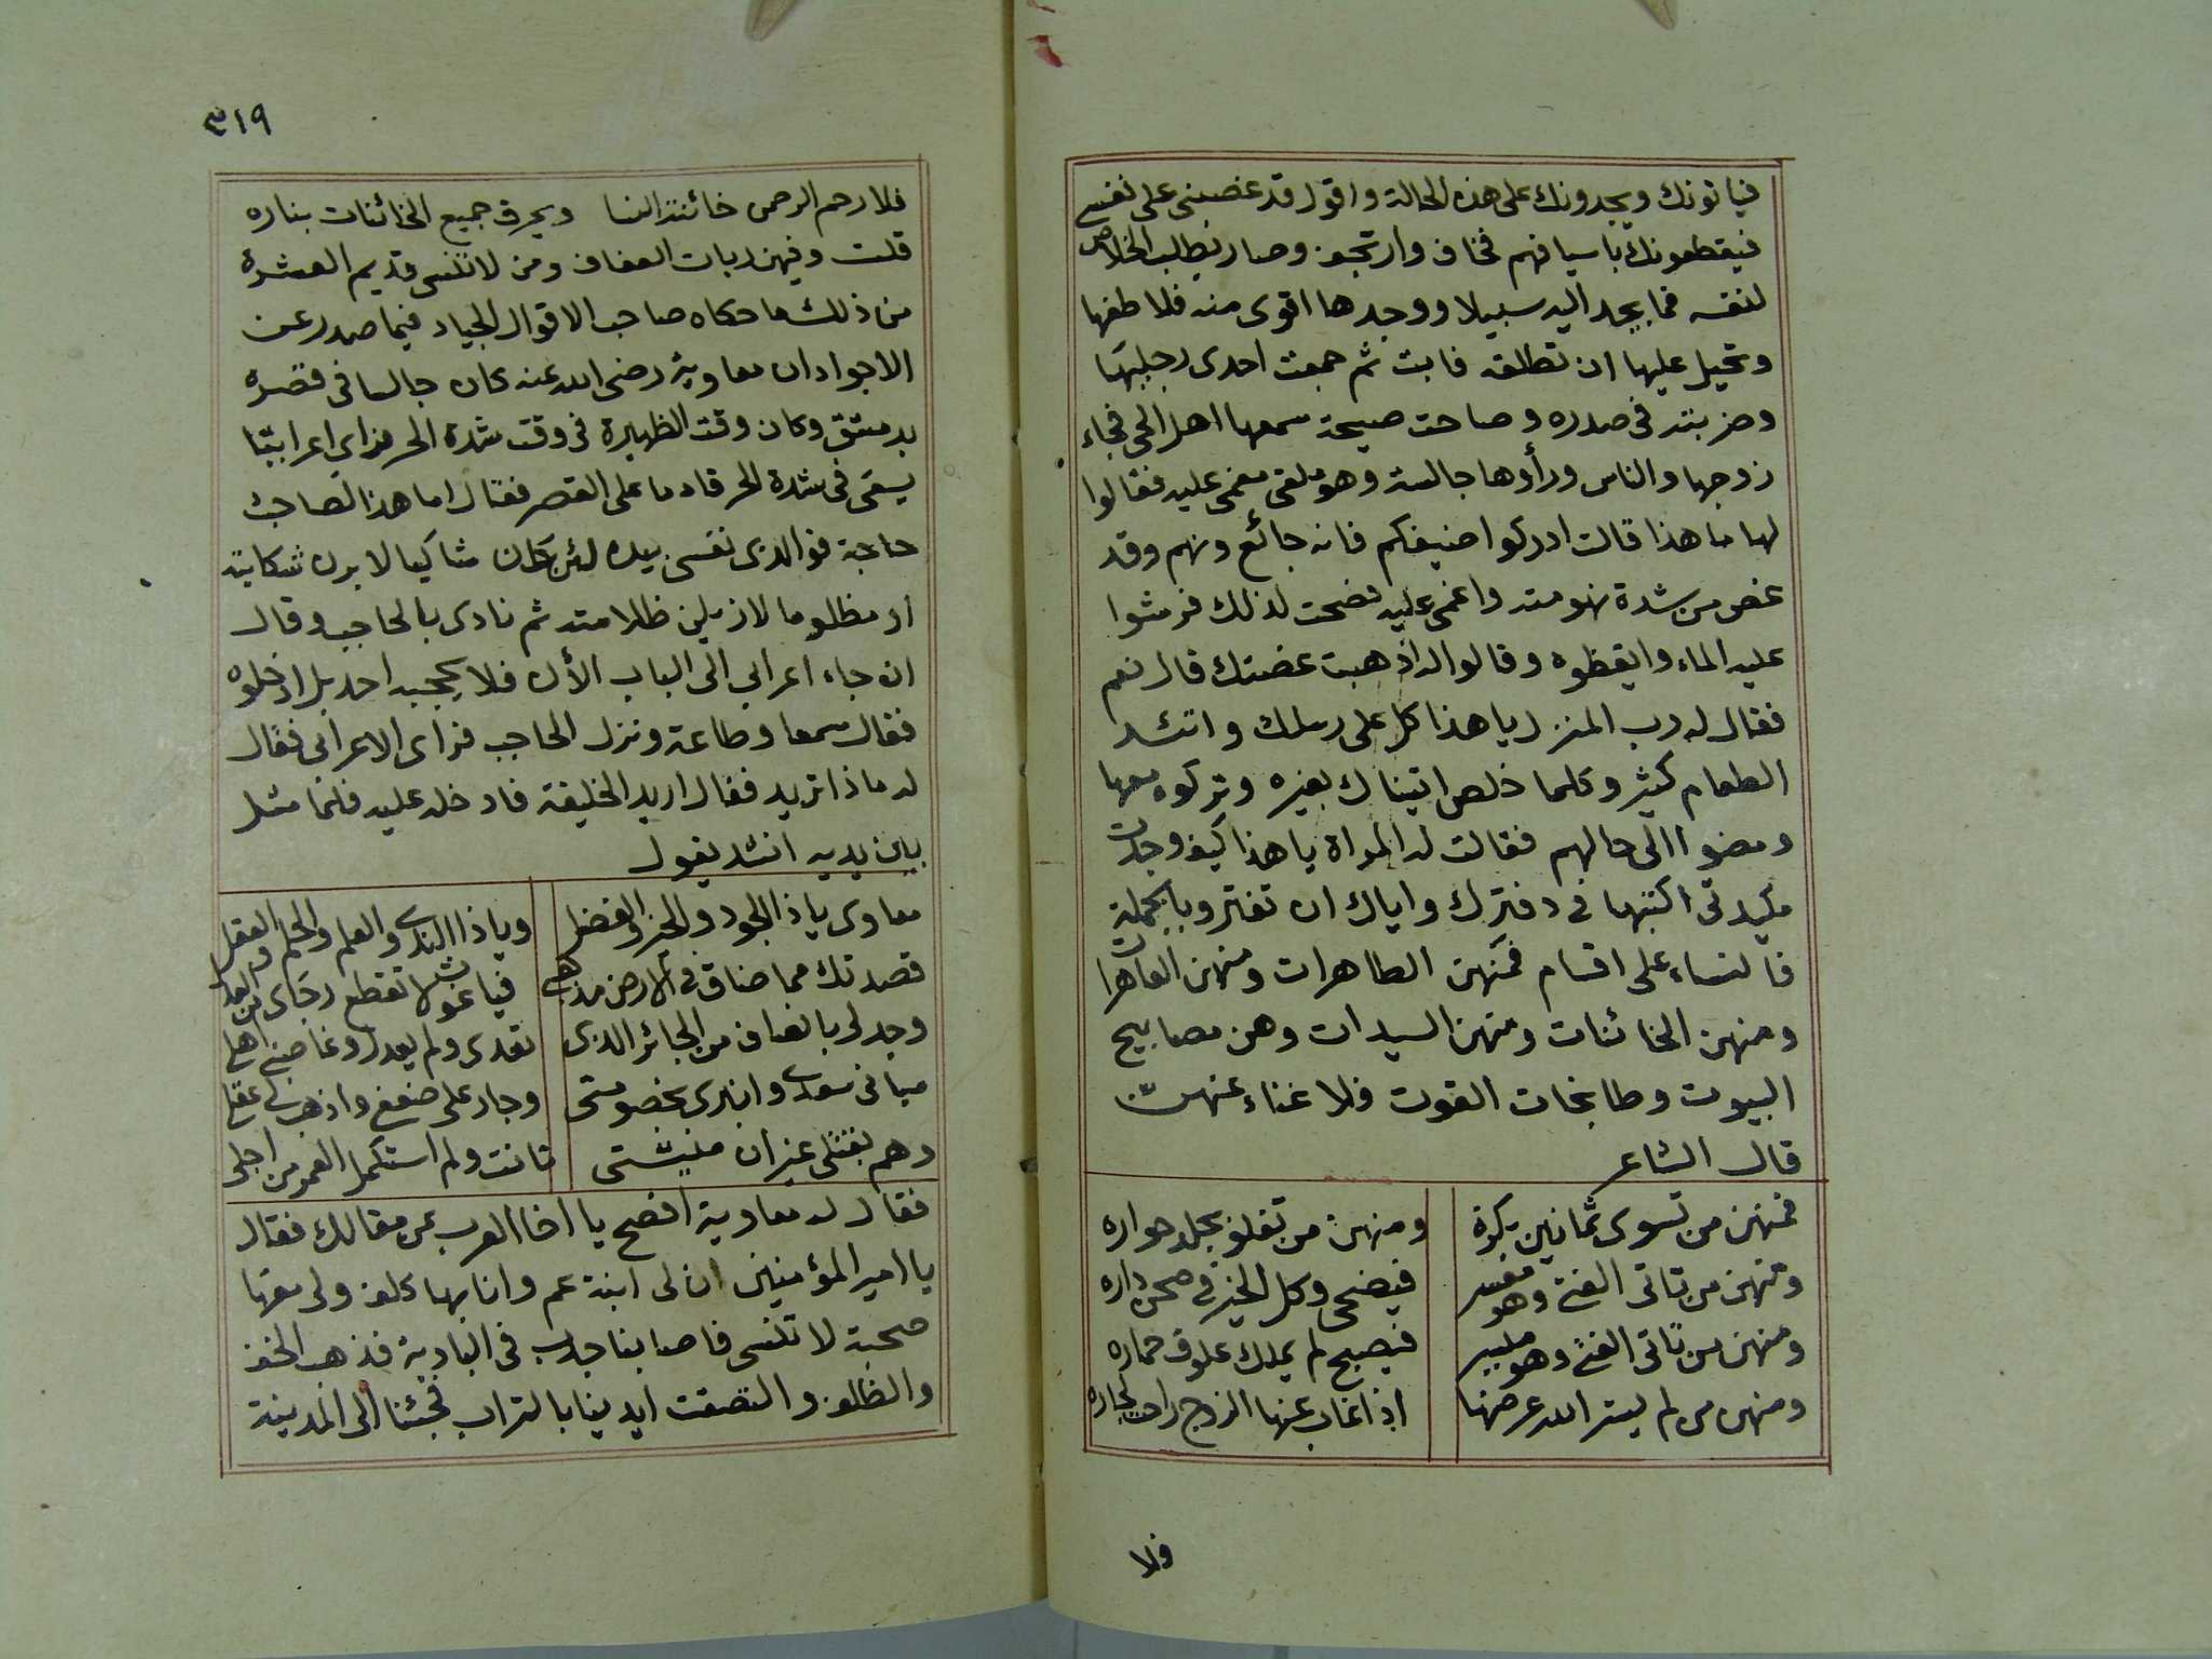 فياتونك ويجدونك على هذه الحالة واقول قد غصبنى على نفسى
فيقطعونك باسيافهم فخاف وارتجف وصار يطلب الخلاص
لنفسه فما يجد اليه سبيلا ووجدها اقوى منه فلاطفها
وتحيل عليها ان تطلقه فابت ثم جمعت احدى رجليها
وضربته فى صدره وصاحت صيحة سمعها اهل الحى فجاء
زوجها والناس ورأوها جالسة وهو ملقى مغمى عليه فقالوا
لها ما هذا قالت ادركوا ضيفكم فانه جائع ونهم وقد
غص من شدة نهومته واغمى عليه فصحت لذلك فرشوا
عليه الماء وايقظوه وقالوا له اذهبت غصتك قال نعم
فقال له رب المنزل يا هذا كل على رسلك واتئد
الطعام كثير وكلما خلص اتيناك بغيره وتركوه معها
ومضوا الى حالهم فقالت له المراة يا هذا كيف وجدت
مكيدتى اكتبها فى دفترك واياك ان تفتر وبالجملة
فالنساء على اقسام فمنهن الطاهرات ومنهن العاهرات
ومنهن الخائنات ومنهن السيدات وهن مصابيح
البيوت وطابخات القوت فلا غناء عنهن
قال الشاعر
فمنهن من تسوى ثمانين بكرة ومنهن من تغلو بجلد حواره
ومنهن من تاتى الفتى وهو معسر فيضحى وكل الخير فى صحن داره
ومنهن من تاتى الفتى وهو مليسر فيصبح لم يملك علوف حماره
ومنهن من لم يستر الله عرضها اذا غاب عنها الزوج راحت لجاره
فلا
٣١٩
فلا رحم الرحمن خائنة النسا ويحرق جميع الخائنات بناره
قلت وفيهن ربات العفاف ومن لا تنسى قديم العشرة
من ذلك ما حكاه صاحب الاقوال الجياد فيما صدر عن
الاجواد ان معاوية رضى الله عنه كان جالسا فى قصره
بدمشق وكان وقت الظهيرة فى وقت شدة الحر فراى اعرابيا
يسعى فى شدة الحر قادما على القصر فقال اما هذا لصاحب
حاجة فوالذى نفسى بيده لئن كان شاكيا لابرن شكايته
او مظلوما لازيلن ظلامته ثم نادى بالحاجب وقال
ان جاء اعرابى الى الباب الأن فلا يحجبه احد بل ادخلوه
فقال سمعا وطاعة ونزل الحاجب فراى الاعرابى فقال
له ماذا تريد فقال اريد الخليفة فادخله عليه فلما مثل
بين يديه انشد يقول
معاوى ياذا الجود والخير والفضل وياذا الندى والعلم والحلم والعقل
قصدتك مما ضاق فى الارض مذهبى فياغوث لا تقطع رجاى من العدل
وجد لى بانصاف من الجائر الذى تعدى ولم يعدل وغاصبنى اهلى
سبانى سعدى وانبرى بخصومتى وجار على ضعفى واذهب لى عقلى
وهم بقتلى غير ان منيتى تانت ولم استكمل العمر من اجلى
فقال له معاوية افصح يا اخا العرب عن مقالك فقال
يا امير المؤمنين ان لى ابنة عم وانا بها كلف ولى معها
صحبة لا تنسى فاصابنا جدب فى البادية فذهب الخف
والظلف والتصقت ايدينا بالتراب فجئنا الى المدينة